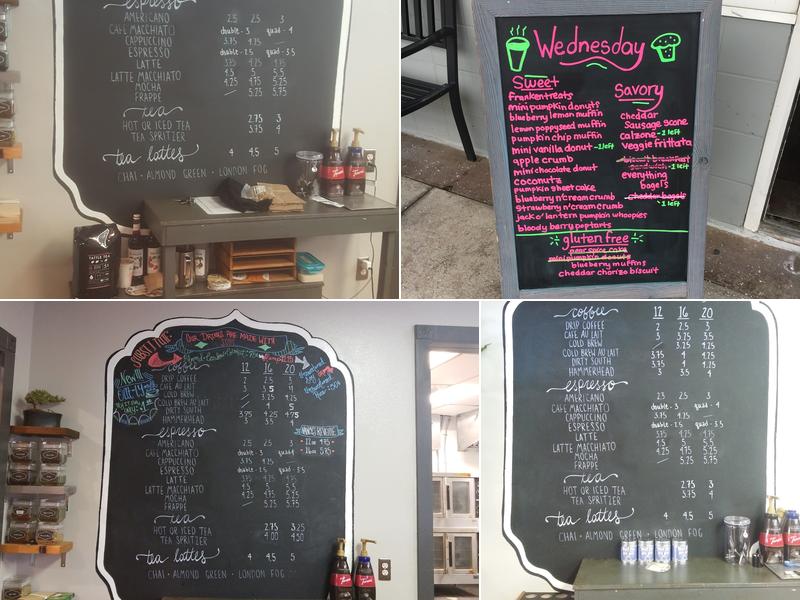 espresso
AMERICANO 2.5 2.5 3
CAFE MACCHIATO double - 3 quad - 4
CAPPUCCINO 3.75 4.75
ESPRESSO double - 2.5 quad - 3.5
LATTE 3.75 4.25 4.75
LATTE MACCHIATO 4.5 5 5.5
MOCHA 4.25 4.75 5.25
FRAPPE 5.25 5.75
tea
HOT OR ICED TEA 2.75 3
TEA SPRITZER 3.75 4
tea lattes 4 4.5 5
CHAI • ALMOND GREEN • LONDON FOG
TATTLE TEA
Torani
Wednesday
Sweet
frankentreats
mini pumpkin donuts
blueberry lemon muffin
lemon poppyseed muffin
pumpkin chip muffin
mini vanilla donut - 1 left
apple crumb
mini chocolate donut
coconutz
pumpkin sheet cake
blueberry n' cream crumb
strawberry n' cream crumb
jack o' lantern pumpkin whoopies
bloody berry poptarts
Savory
cheddar
sausage scone
calzone - 1 left
veggie frittata
biscuit breakfast
sandwich - 1 left
everything
bagels
cheddar bagels
1 left
gluten free
pear spice cake
mini pumpkin donuts
blueberry muffins
cheddar chorizo biscuit
OUR DRINKS ARE MADE WITH
coffee 12 16 20
DRIP COFFEE 2 2.5 3
CAFE AU LAIT 3 3.5 4
COLD BREW
COLD BREW AU LAIT 4 5
DIRTY SOUTH 3.75 4.25 4.75
HAMMERHEAD 3 3.5 4
espresso
AMERICANO 2.5 2.5 3
CAFE MACCHIATO double - 3 quad - 4
CAPPUCCINO 3.75 4.75
ESPRESSO double - 2.5 quad - 3.5
LATTE 3.75 4.25 4.75
LATTE MACCHIATO 4.5 5 5.5
MOCHA 4.25 4.75 5.25
FRAPPE 5.25 5.75
tea
HOT OR ICED TEA 2.75 3.25
TEA SPRITZER 4.00 4.50
tea lattes 4 4.5 5
CHAI • ALMOND GREEN • LONDON FOG
Torani
coffee 12 16 20
DRIP COFFEE 2 2.5 3
CAFE AU LAIT 2.5 3 3.5
COLD BREW 3.25 4.25
COLD BREW AU LAIT 3.75 4 4.25
DIRTY SOUTH 3.75 4.25
HAMMERHEAD 3 3.5 4
espresso
AMERICANO 2.5 2.5 3
CAFE MACCHIATO double - 3 quad - 4
CAPPUCCINO 3.75 4.25
ESPRESSO double - 2.5 quad - 3.5
LATTE 3.75 4.25 4.75
LATTE MACCHIATO 4.5 5 5.5
MOCHA 4.25 4.75 5.25
FRAPPE 5.25 5.75
tea
HOT OR ICED TEA 2.75 3
TEA SPRITZER 3.75 4
tea lattes 4 4.5 5
CHAI • ALMOND GREEN • LONDON FOG